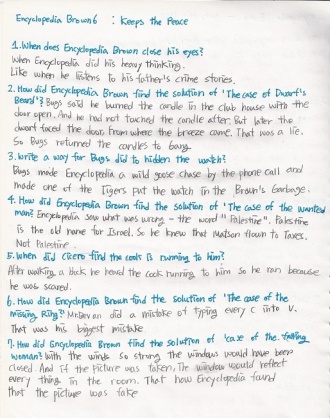 Encyclopedia Brown 6 : Keeps the Peace
1. When does Encyclopedia Brown close his eyes?
When Encyclopedia did his heavy thinking.
Like when he listens to his father's crime stories.
2. How did Encyclopedia Brown find the solution of 'The case of Dwarf's
Beard'? Bugs said he burned the candle in the club house with the
door open. And he had not touched the candle after. But later the
dwarf faced the door from where the breeze came. That was a lie.
So Bugs returned the candles to bang
3. Write a way for Bugs did to hidden the watch?
Bugs made Encyclopedia a wild goose chase by the phone call and
made one of the Tigers put the watch in the Brown's Garbage.
4. How did Encyclopedia Brown find the solution of 'The case of the wanted
man? Encyclopedia saw what was wrong - the word "Palestine". Palestine
is the old name for Israel. So he knew that Matson flown to Texas.
Not Palestine.
5. When did Cicero find the cook is running to him?
After walking a block he heard the cook running to him so he ran because
he was scared.
6. How did Encyclopedia Brown find the solution of 'The case of the
missing Ring?' Mr. Bevan did a mistake of typing every c into v.
That was his biggest mistake
7. How did Encyclopedia Brown find the solution of 'case of the falling
woman? With the winds so strong the windows would have been
closed And if the picture was taken, the window would reflect
every thing in the room. That how Encyclopedia found
that the picture was take